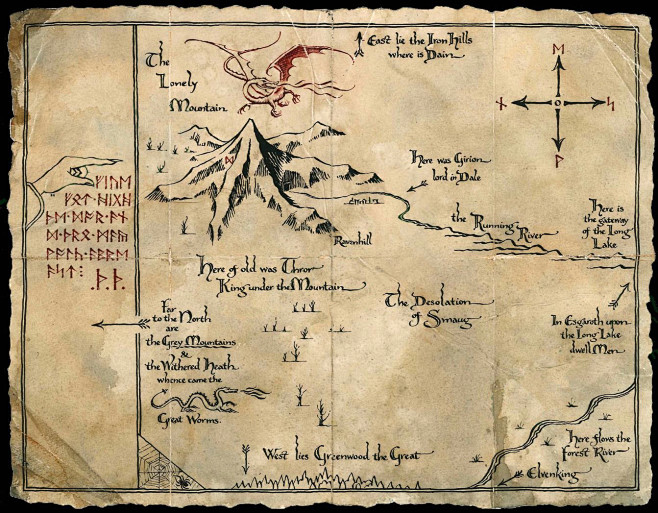 The
Lonely
Mountain
East lie the Iron Hills
where is Dain
ᛖ
ᚾ
ᛋ
ᚹ
ᛞ
Here was Girion
lord in Dale
the Running River
Here is
the gateway
of the Long
Lake
Ravenhill
ᚠᛁᚢᛖ
ᚠᛟᛏ·ᚻᛁᚷᚻ
ᚦᛖ·ᛞᚩᚱ·ᚪᚾ
ᛞ·ᚦᚱᛟ·ᛗᚪᚣ
ᚹᚪᛚᚳ·ᚪᛒᚱᛖ
ᚪᛋᛏ⁝
·ᚦ·ᚦ·
Here of old was Thror
King under the Mountain
The Desolation
of Smaug
Far
to the North
are
the Grey Mountains
&
the Withered Heath
whence came the
Great Worms.
In Esgaroth upon
the Long Lake
dwell Men
West lies Greenwood the Great
Here flows the
Forest River
Elvenking